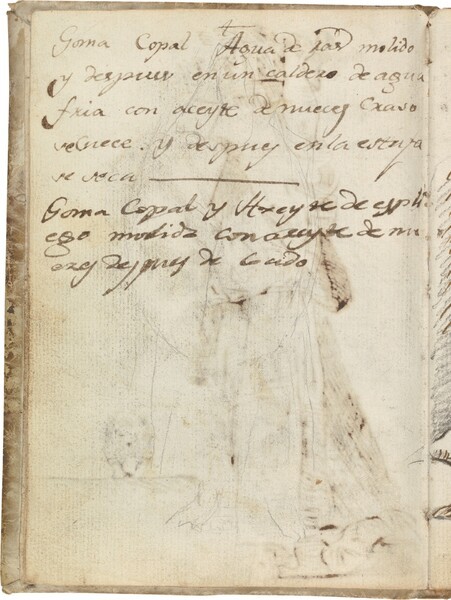 Goma Copal Agua de ras molido
y despues en un caldero de agua
fria con aceyte de nueces Craso
se cuece. y despues en la estufa
se seca
Goma Copal y Azeyte de espli
ego molida con aceyte de nu
ezes despues de cocido